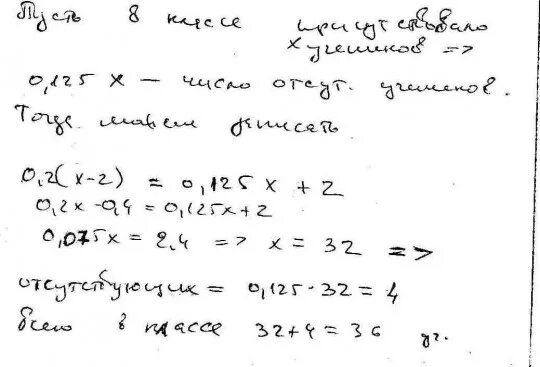 Пусть в классе присутствовало
x учеников =>
0,125 x – число отсут. учеников.
Тогда можем записать
0,2(x-2) = 0,125x + 2
0,2x-0,4 = 0,125x+2
0,075x = 2,4 => x = 32 =>
отсутствующих = 0,125·32 = 4
Всего в классе 32+4 = 36 уч.